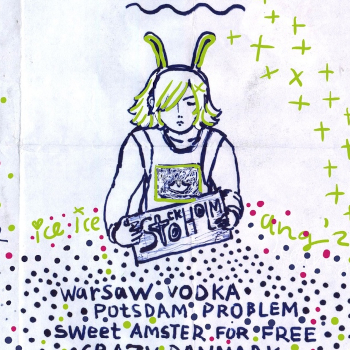 ice ice
STOCKHOLM
ang'z
warsaw VODKA
POTSDAM PROBLEM
SWEET AMSTER FOR FREE